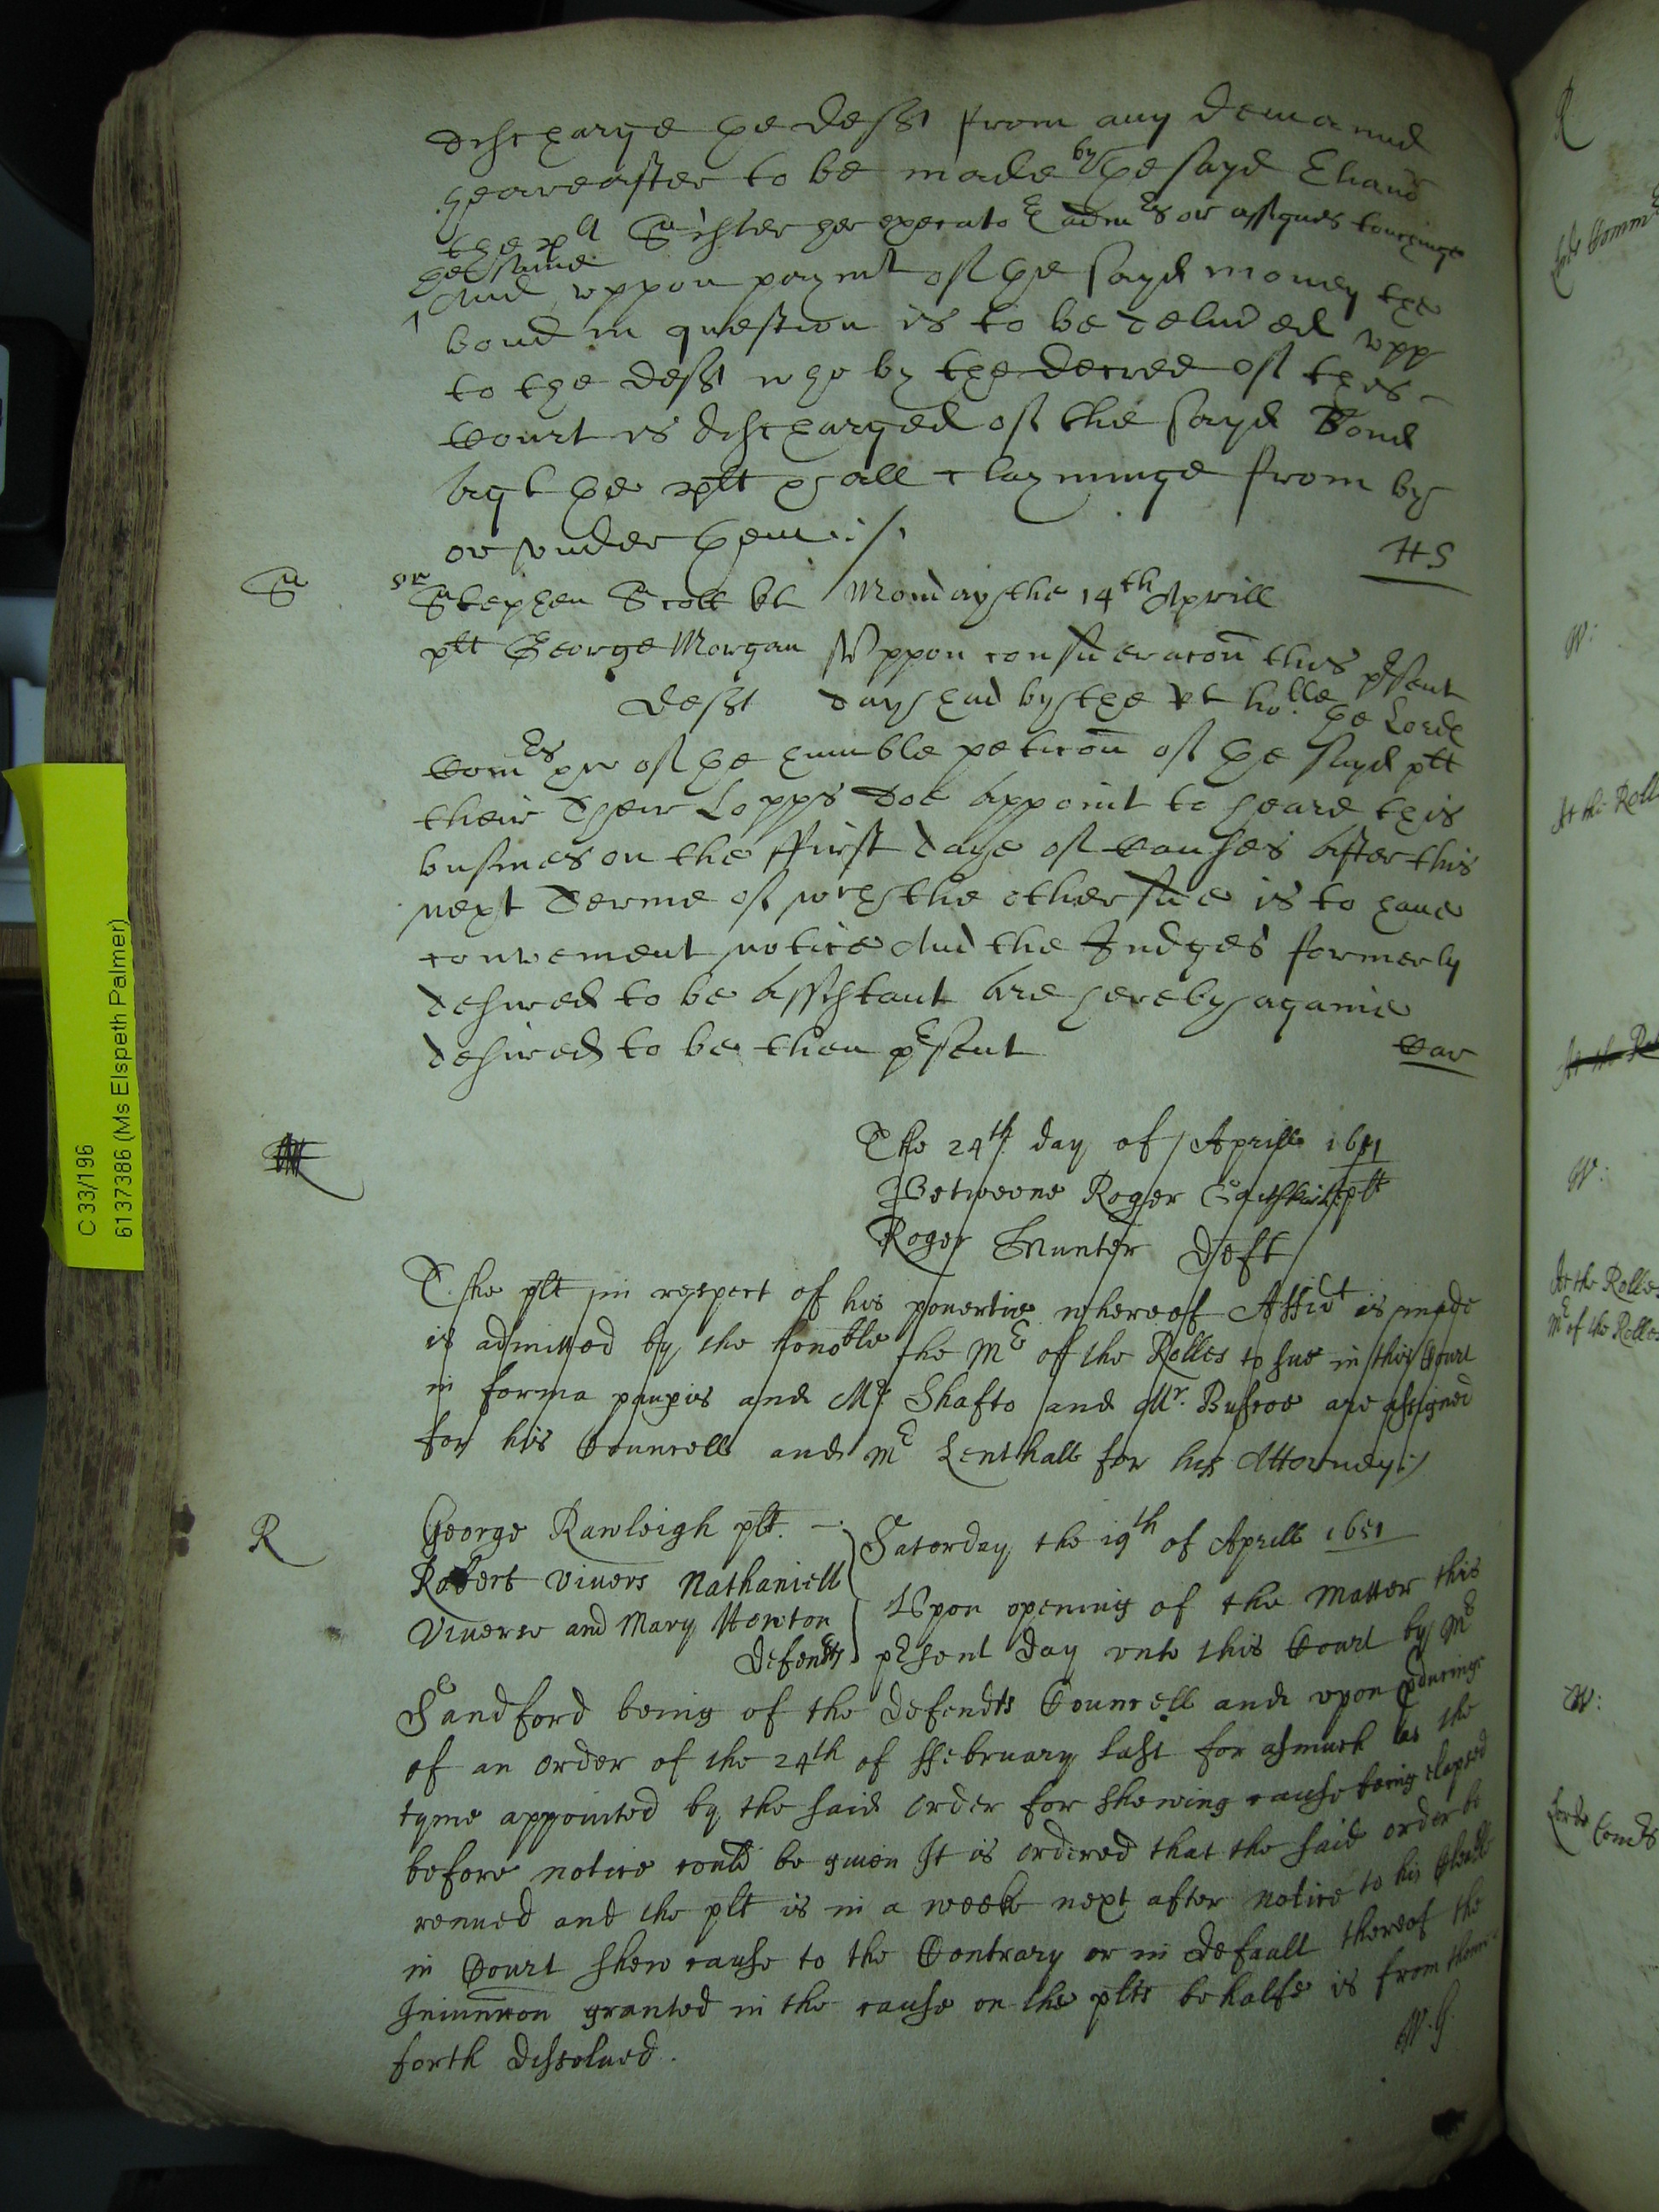 discharge the deft from any demannd
heareafter to be made by the sayd
the pl Sister her executo adm or assignes touchinge
the same
And uppon paymt of the sayd money the
bond in question is to be deliued upp
to the deft who by the decree of this
Court is discharged of the sayd Bond
agt the plt & all clayminge from by
or under them ./.
HS
S
Sr Stephen Scott kt Monday the 14th Aprill
plt George Morgan Uppon consideracon this psent
deft day had by the rt hoble the Lords
Comrs &c of the humble peticon of the sayd plt
their Lopps doe appoint to heare this
busines on the ffirst daye of Causes after this
next Terme of wch the other side is to haue
convenient notice And the Judges formerly
desired to be assistant are hereby againe
desired to be then psent
Car
The 24th day of Aprill 1651
Betweene Roger plt
Roger Deft
The plt in respect of his pouertie whereof Affidt is made
is admitted by the honoble the Mr of the Rolles to sue in this Court
in forma paupis and Mr Shafto and Mr. Buscoe are assigned
for his Councell and Mr Lenthall for his Attorney
R
George Rawleigh plt.
Robert Viuers Nathaniell
Viuerse and Mary Newton
Defendts
Saterday the 19th of Aprill 1651
Upon opening of the Matter this
psent day vnto this Court by Mr
Sandford being of the Defendts Councell and vpon pducinge
of an order of the 24th of ffebruary last for asmuch as the
tyme appointed by the said order for shewing cause being elapsed
before notice could be giuen It is ordered that the said order be
renued and the plt is in a weeke next after notice to his Clarke
in Court shew cause to the Contrary or in default thereof the
Iniunccon granted in the cause on the plts behalfe is from thence
forth dissolued.
W.G.
C 33/196
6137386 (Ms Elspeth Palmer)
R
W:
At the Rolles
W:
At the Rolles
Mr of the Rolles
W: